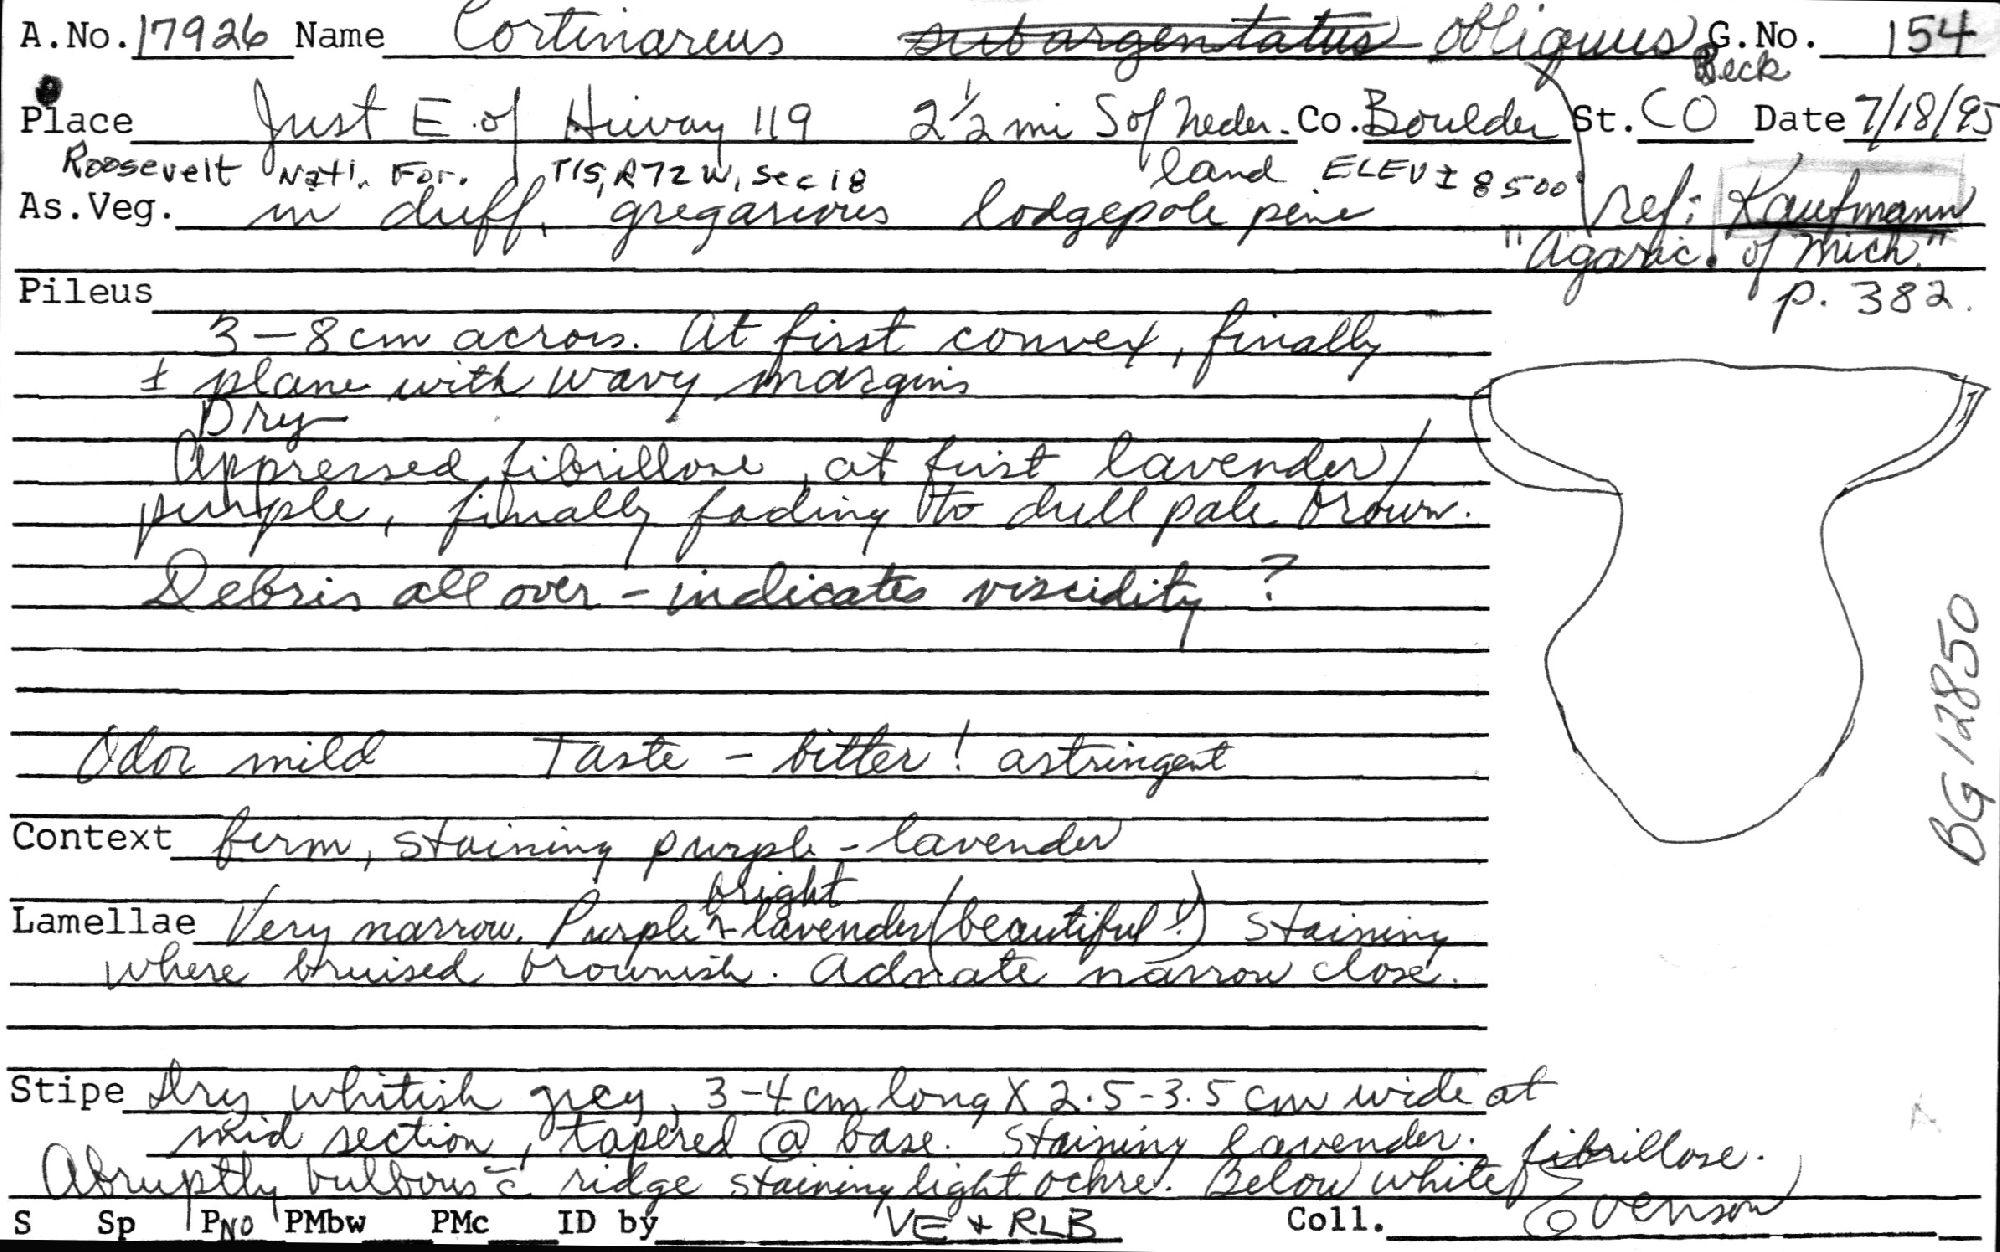 A.No. 17926 Name Cortinareus subargentatus obliquus G.No. 154
Peck
Place Just E. of Hiway 119 2 1/2 mi S of Neder- Co. Boulder St. CO Date 7/18/95
Roosevelt Natl. For. T1S, R72W, Sec 18 land ELEV ± 8500'
As.Veg. in duff, gregarious lodgepole pine ref: Kaufmann
"Agaric. of Mich."
p. 382.
Pileus
3-8 cm across. At first convex, finally
± plane with wavy margins
Dry
Appressed fibrillose, at first lavender/
purple, finally fading to dull pale brown.
Debris all over - indicates viscidity?
Odor mild Taste - bitter! astringent
Context firm, staining purple-lavender
bright
Lamellae Very narrow. Purple - lavender (beautiful!) Staining
where bruised brownish. Adnate narrow close.
Stipe Dry whitish grey, 3-4 cm long X 2.5-3.5 cm wide at
mid section, tapered @ base. Staining lavender.
Abruptly bulbous c̄ ridge staining light ochre. Below white fibrillose.
S Sp PNO PMbw PMc ID by VE + RLB Coll. Evenson
BG 12850